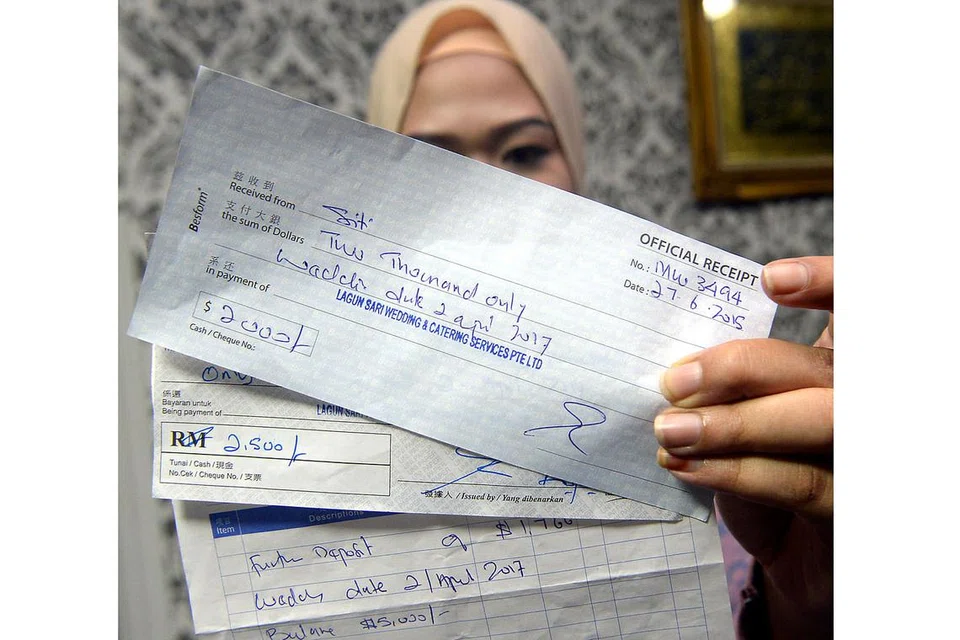 Besform®
茲收到
Received from Siti
支付大銀
the sum of Dollars Two Thousand only
wadding date 2 april 2017
系还
in payment of
LAGUN SARI WEDDING & CATERING SERVICES PTE LTD
$ 2000/-
Cash / Cheque No.:
OFFICIAL RECEIPT
No.: MW 3494
Date: 27.6.2015
Only
係還
Bayaran untuk
Being payment of
LAGUN SARI
RM 2,500/-
Tunai / Cash / 現金
No.Cek / Cheque No. / 支票
發據人 / Issued by / Yang dibenarkan
Item
Descriptions
Deposit $1,700
date 2/April 2017
Balance $5,000/-